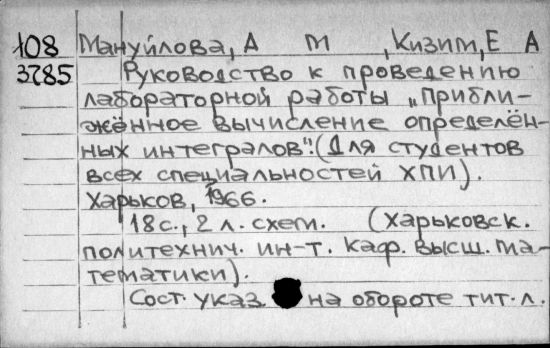 108 Мануйлова, А М , Кизим, Е А
3785 Руководство к проведению
лабораторной работы „Прибли-
жённое вычисление определён-
ных интегралов" (Для студентов
всех специальностей ХПИ).
Харьков, 1966.
18 с., 2 л. схем. (Харьковск.
политехнич. ин-т. Каф. высш. ма-
тематики).
Сост. указ. на обороте тит. л.